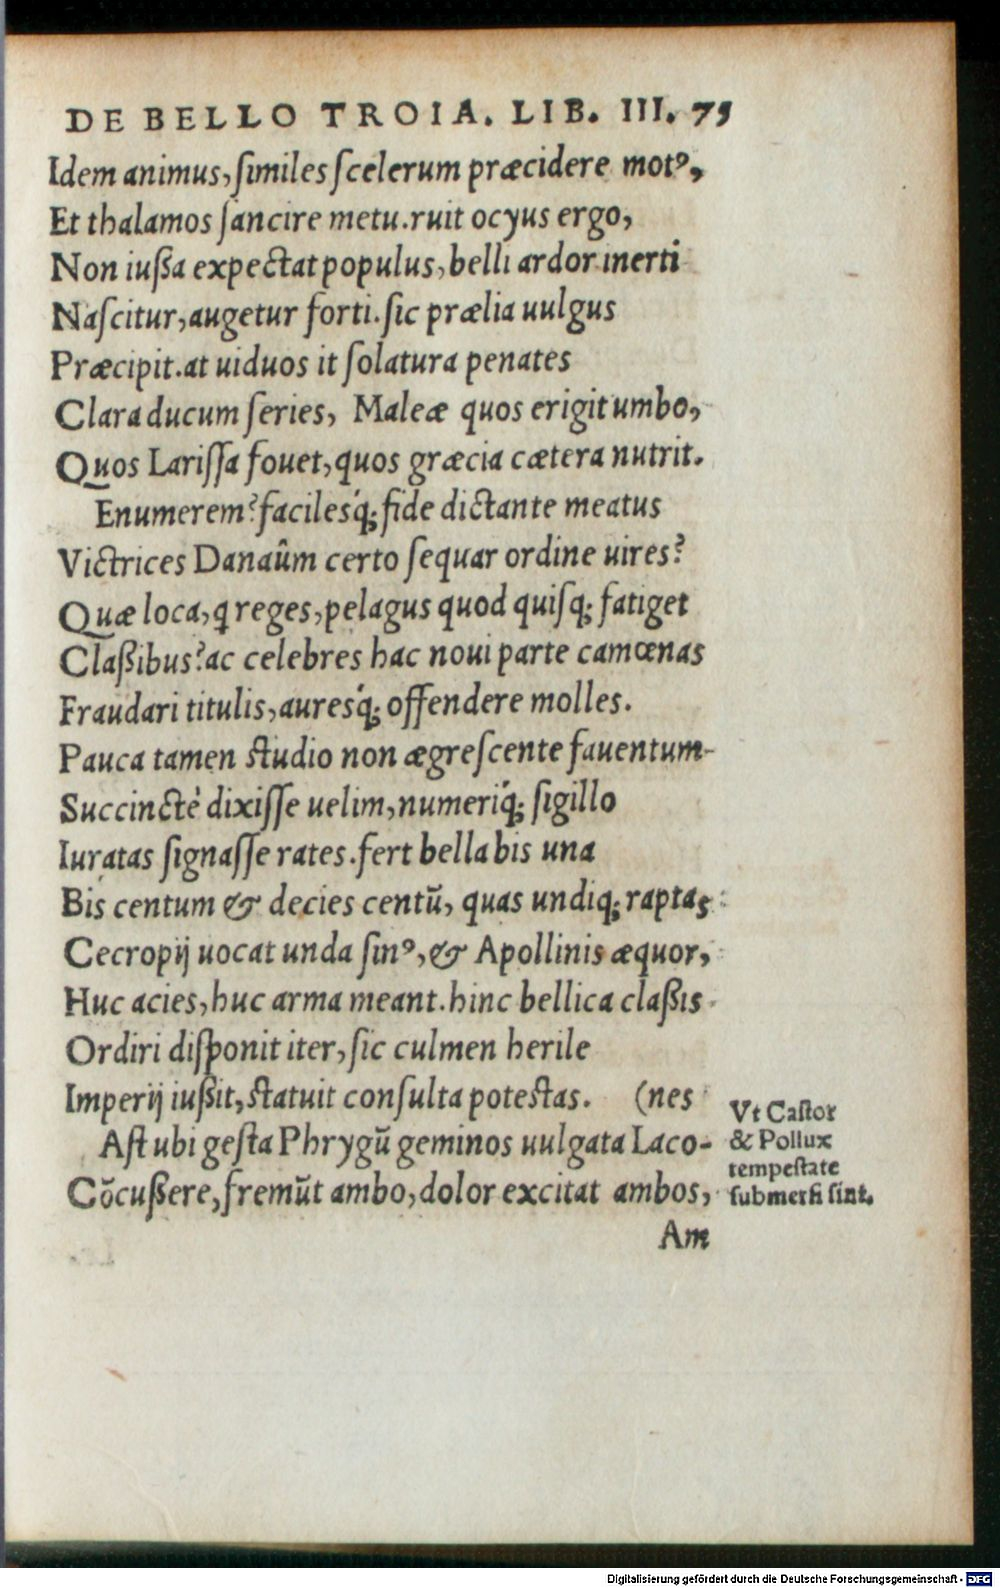 DE BELLO TROIA. LIB. III. 75
Idem animus, similes scelerum præcidere motꝰ,
Et thalamos sancire metu. ruit ocyus ergo,
Non iußa expectat populus, belli ardor inerti
Nascitur, augetur forti. sic prælia uulgus
Præcipit. at uiduos it solatura penates
Clara ducum series, Maleæ quos erigit umbo,
Quos Larissa fouet, quos græcia cætera nutrit.
Enumerem? facilesq́; fide dictante meatus
Victrices Danaûm certo sequar ordine uires?
Quæ loca, q reges, pelagus quod quisq; fatiget
Claßibus? ac celebres hac noui parte camœnas
Fraudari titulis, auresq́; offendere molles.
Pauca tamen studio non ægrescente fauentum
Succinctè dixisse uelim, numeriq́; sigillo
Iuratas signasse rates. fert bella bis una
Bis centum & decies centū, quas undiq; raptas
Cecropij uocat unda sinꝰ, & Apollinis æquor,
Huc acies, huc arma meant. hinc bellica claßis
Ordiri disponit iter, sic culmen herile
Imperij iußit, statuit consulta potestas. (nes
Ast ubi gesta Phrygū geminos uulgata Laco-
Cōcußere, fremūt ambo, dolor excitat ambos,
Vt Castor
& Pollux
tempestate
submersi sint.
Am
Digitalisierung gefördert durch die Deutsche Forschungsgemeinschaft - DFG